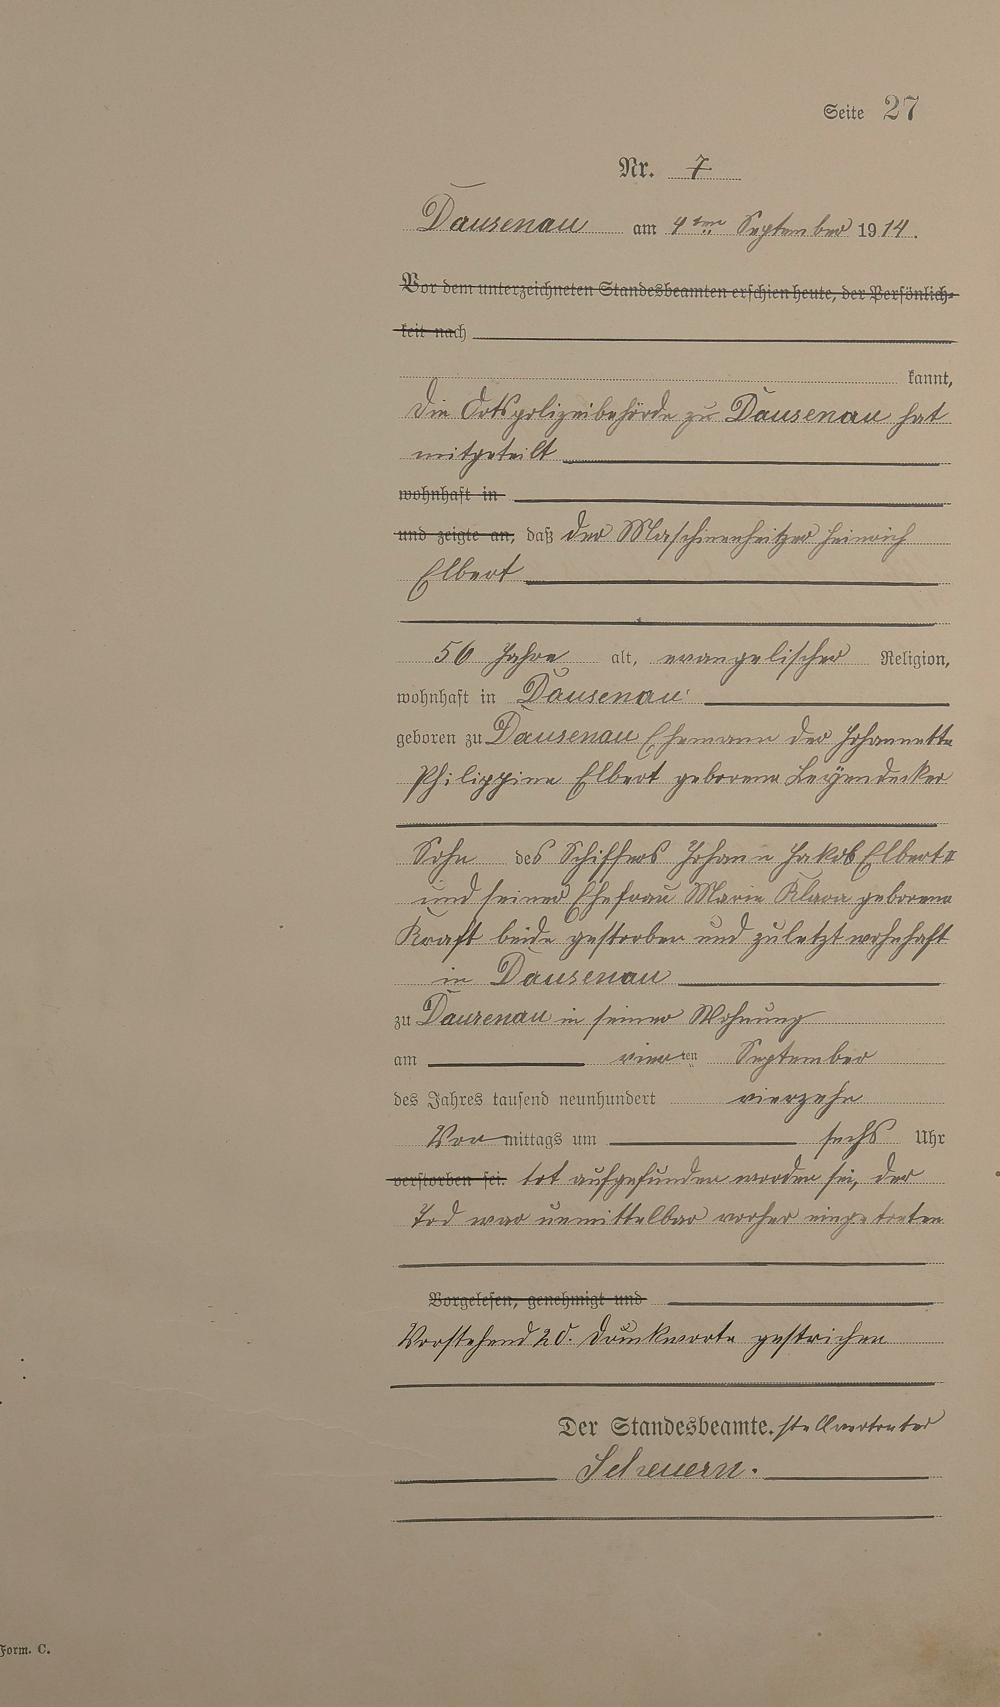 Seite 27
Nr. 7
Dausenau am 4ten September 1914.
Vor dem unterzeichneten Standesbeamten erschien heute, der Persönlich-
keit nach
kannt,
Die Ortspolizeibehörde zu Dausenau hat
mitgeteilt
wohnhaft in
und zeigte an, daß der Maschinenheitzer Heinrich
Elbert
56 Jahre alt, evangelischer Religion,
wohnhaft in Dausenau
geboren zu Dausenau Ehemann der Johannette
Philippine Elbert geborene Leyendecker
Sohn des Schiffers Johann Jakob Elbert II
und seiner Ehefrau Marie Klara geborene
Kraft beide gestorben und zuletzt wohnhaft
in Dausenau
zu Dausenau in seiner Wohnung
am vierten September
des Jahres tausend neunhundert vierzehn
Vormittags um sechs Uhr
verstorben sei. tot aufgefunden worden sei, der
Tod war unmittelbar vorher eingetreten
Vorgelesen, genehmigt und
Vorstehend 20. Druckworte gestrichen
Der Standesbeamte. stellvertreter
Scheuern.
Form. C.